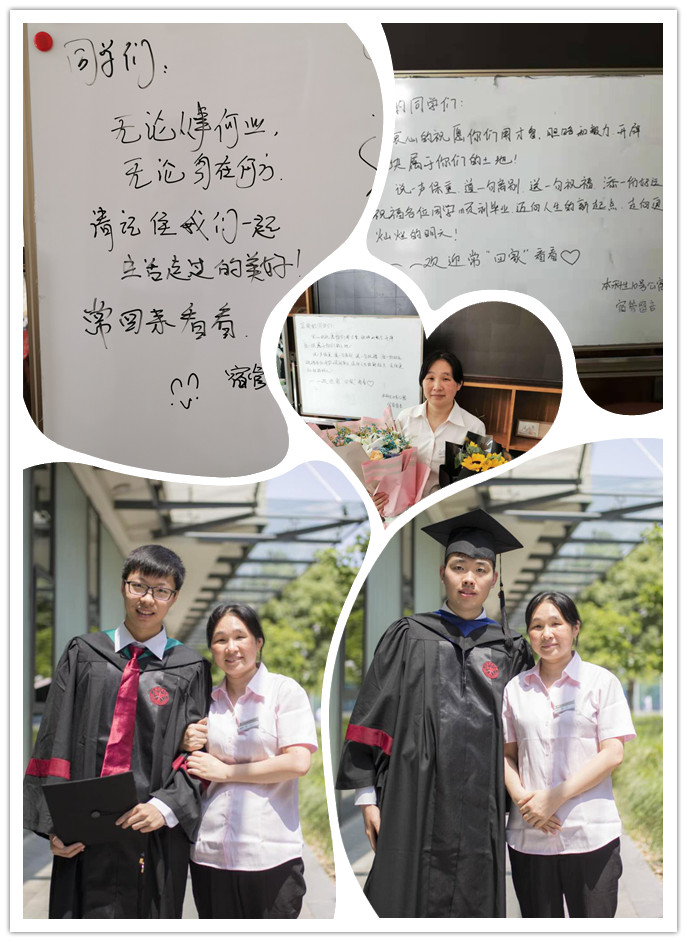 同学们:
无论从事何业,
无论身在何方.
请记住我们一起
走过的美好!
常回来看看.
宿管
的同学们:
衷心的祝愿你们用才智、胆略和毅力,开辟
块属于你们的土地!
说一声保重,道一句离别,送一句祝福,添一份
祝福各位同学顺利毕业,迈向人生的新起点,走向更
灿烂的明天!
——欢迎常“回家”看看♡
本科生
宿管
——欢迎常“回家”看看♡